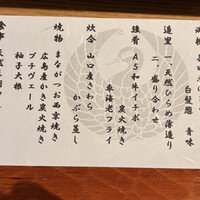 白髪葱 青味
造里 一、天然ひらめ薄造り
二、盛り合わせ
強肴 A5和牛イチボ
炭火焼き
車海老フライ
炊合 山口産さわら
かぶら蒸し
焼物 まながつお西京焼き
広島産かき炭火焼き
プチヴェール
柚子大根
食事